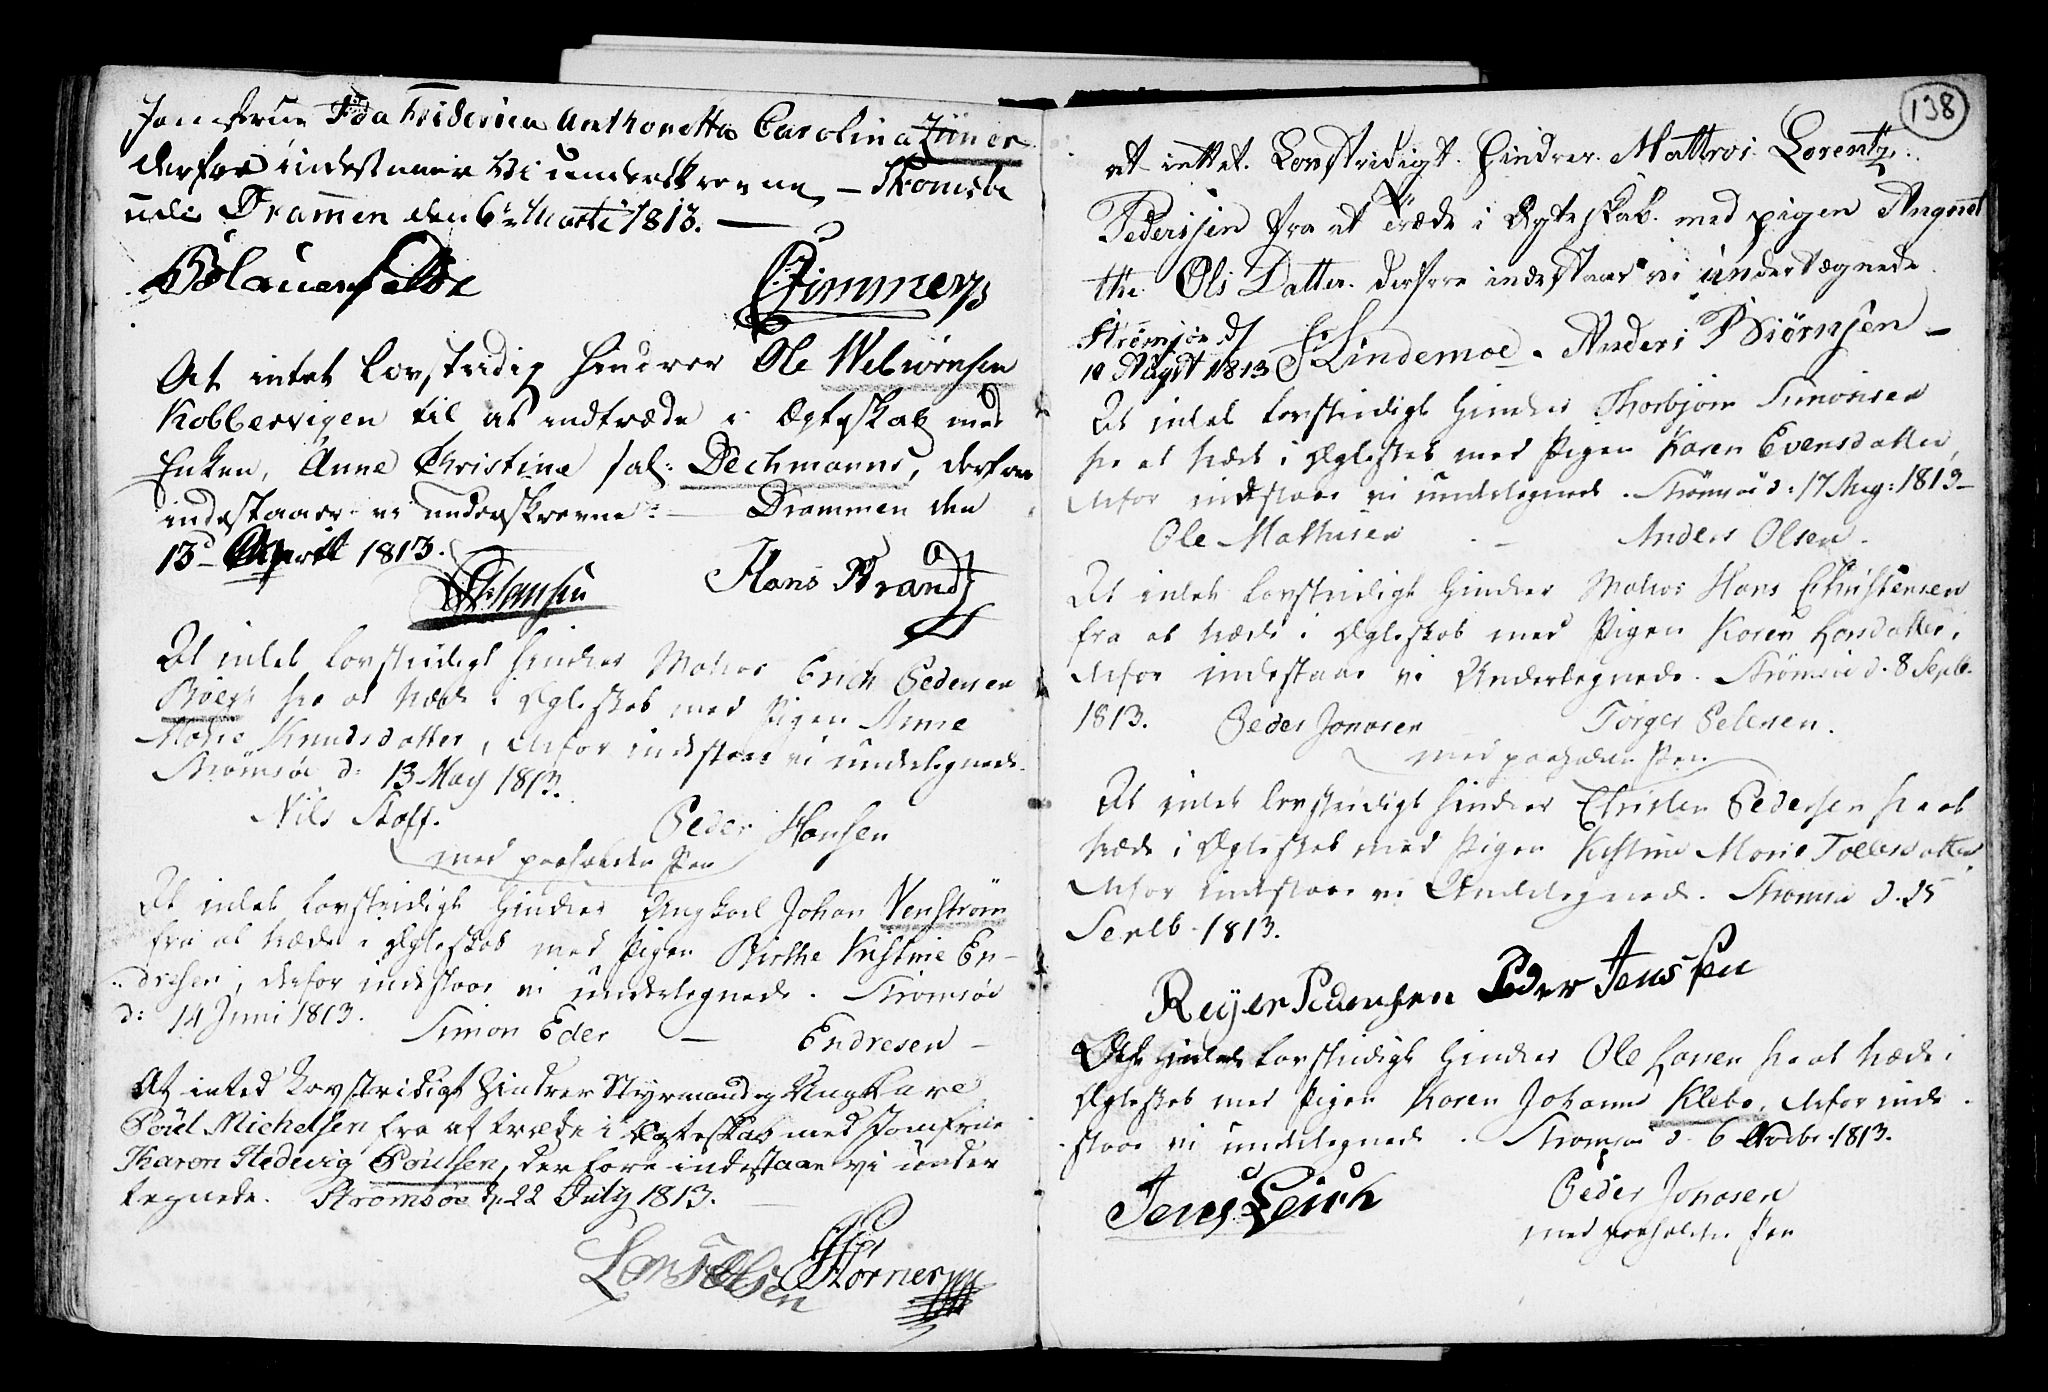 Jomfrue Ida Friderica Anthonetta Carolina Ziiner
derfor indestaaer Vi underskrevne, — Stromsøe
udi Drammen den 6te Marti 1813. —
Blauenfeldt
CZimmers
At intet Lovstridig hindrer Ole Webiørnsen
Kobbervigen til at indtræde i Ægteskab med
Enken, Anne Christine sal: Dechmanns, derfore
indestaaer vi underskrevne: — Drammen den
13d April 1813.
Hansen
Hans Strand
At intet Lovstridigt hindrer Matros Erich Pedersen
fra at træde i Ægteskab med Pigen Anne
Marie Knudsdatter, derfor indestaae vi undertegnede.
Strømsøe d: 13 May 1813.
Nils Staff. Peder Hansen
med paaholden Pen
At intet Lovstridigt hindrer Ungkarl Johan Venstrøm
fra at træde i Ægteskab med Pigen Birthe Kistine En-
dresen, derfor indestaae vi undertegnede. Strømsøe
d: 14 Juni 1813. Simon Eder — Endresen —
At inted Lovstridigt hindrer Styrmand og Ungkarl
Poul Michelsen fra at træde i Ægteskab med Jomfrue
Karen Hedevig Poulsen, derfore indestaae vi under
tegnede. Strømsøe d. 22 July 1813. —
Lars Olsen Størner
138
at intet Lovstridigt hindrer Mattros Lorentz
Pederssen fra at træde i Ægteskab med pigen Angnet
the Ols Datter. derfore indestaar vi undertegnede
Strømsøe d/
10 Augst 1813 Lindemoe. Anders Biørnsen —
At intet Lovstridigt hindrer Thorbjørn Simonsen
fra at træde i Ægteskab med Pigen Karen Evensdatter,
derfor indestaae vi undertegnede. Strømsøe d: 17 Aug: 1813 —
Ole Mathisen — Anders Olsen.
At intet Lovstridigt hindrer Matros Hans Christensen
fra at træde i Ægteskab med Pigen Karen Larsdatter,
derfor indestaae vi Undertegnede. Strømsøe d. 8 Septb.
1813. Peder Jonasen Torger Petersen.
med paaholden Pen
At intet Lovstridigt hindrer Christen Pedersen fra at
træde i Ægteskab med Pigen Kistine Marie Tollefsdatter
derfor indestaae vi Undertegnede. Strømsøe d. 25
Septb. 1813.
Reyer Pedersen Peder Jenssen
At intet Lovstridigt hindrer Ole Larsen fra at træde i
Ægteskab med Pigen Karen Johanne Klebo, derfor inde
staae vi undertegnede. Strømsøe d. 6 Novbr. 1813.
Jens Leich
Peder Jonasen
med paaholden Pen